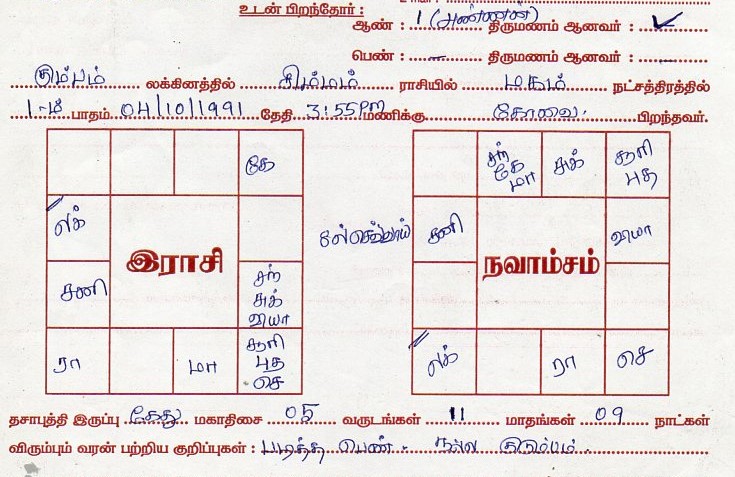 உடன் பிறந்தோர் :
ஆண் : 1 (அண்ணன்) திருமணம் ஆனவர் : ✓
பெண் : – திருமணம் ஆனவர் : –
கும்பம் லக்கினத்தில் சிம்மம் ராசியில் மகம் நட்சத்திரத்தில்
1-ம் பாதம் 04/10/1991 தேதி 3:55PM மணிக்கு கோவை பிறந்தவர்.
கே
லக்
சனி
இராசி
சந்
சுக்
வியா
ரா
மா
சூரி
புத
செ
செவ்வாய்
சந்
கே
மா
சுக்
சூரி
புத
சனி
நவாம்சம்
வியா
லக்
ரா
செ
தசாபுத்தி இருப்பு கேது மகாதிசை 05 வருடங்கள் 11 மாதங்கள் 09 நாட்கள்
விரும்பும் வரன் பற்றிய குறிப்புகள் : படித்த பெண். நல்ல குடும்பம்.